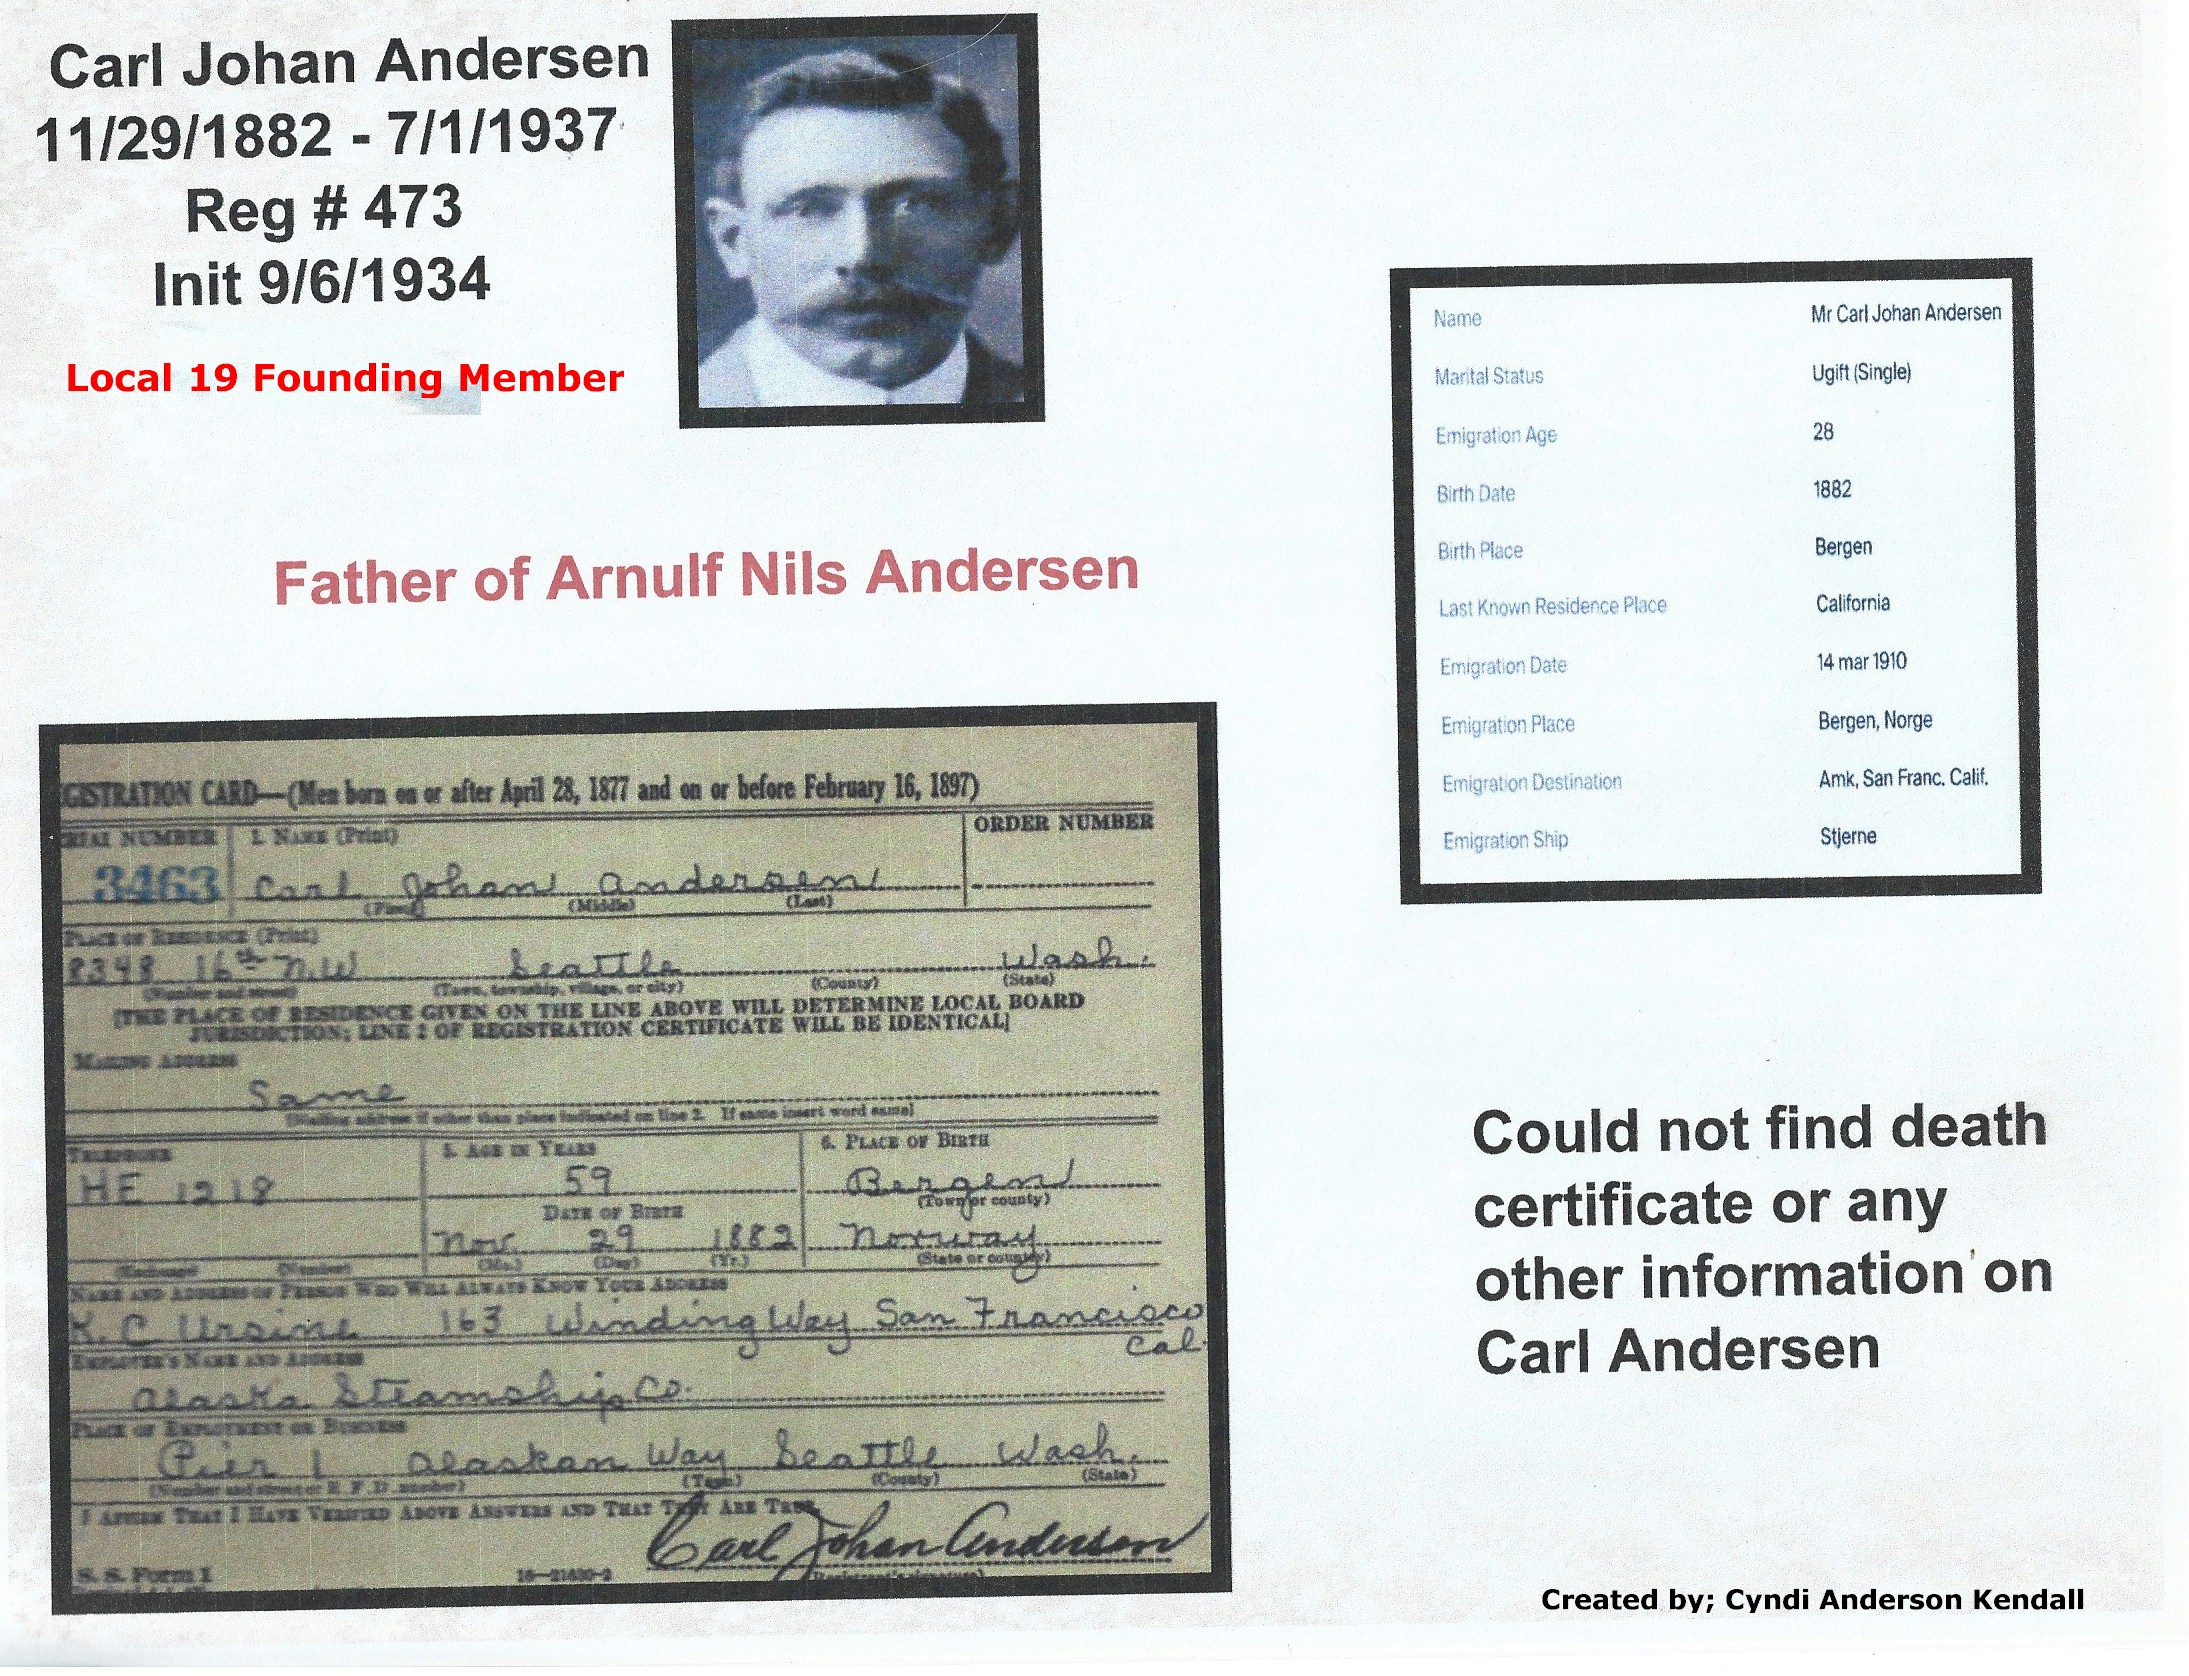 Carl Johan Andersen
11/29/1882 - 7/1/1937
Reg # 473
Init 9/6/1934
Local 19 Founding Member
Father of Arnulf Nils Andersen
Name Mr Carl Johan Andersen
Marital Status Ugift (Single)
Emigration Age 28
Birth Date 1882
Birth Place Bergen
Last Known Residence Place California
Emigration Date 14 mar 1910
Emigration Place Bergen, Norge
Emigration Destination Amk, San Franc. Calif.
Emigration Ship Stjerne
GISTRATION CARD—(Men born on or after April 28, 1877 and on or before February 16, 1897)
RIAL NUMBER 1. NAME (Print) ORDER NUMBER
3463 Carl Johan Andersen
(First) (Middle) (Last)
PLACE OF RESIDENCE (Print)
8348 16th N.W Seattle Wash.
(Number and street) (Town, township, village, or city) (County) (State)
[THE PLACE OF RESIDENCE GIVEN ON THE LINE ABOVE WILL DETERMINE LOCAL BOARD
JURISDICTION; LINE 2 OF REGISTRATION CERTIFICATE WILL BE IDENTICAL]
MAILING ADDRESS
Same
[Mailing address if other than place indicated on line 2. If same insert word same]
TELEPHONE 5. AGE IN YEARS 6. PLACE OF BIRTH
HE 1218 59 Bergen
(Town or county)
DATE OF BIRTH
Nov. 29 1882 Norway
(Exchange) (Number) (Mo.) (Day) (Yr.) (State or country)
NAME AND ADDRESS OF PERSON WHO WILL ALWAYS KNOW YOUR ADDRESS
K. C Ursine 163 Winding Way San Francisco
Cal.
EMPLOYER'S NAME AND ADDRESS
Alaska Steamship Co.
PLACE OF EMPLOYMENT OR BUSINESS
Pier 1 Alaskan Way Seattle Wash.
(Number and street or R. F. D. number) (Town) (County) (State)
I AFFIRM THAT I HAVE VERIFIED ABOVE ANSWERS AND THAT THEY ARE TRUE
Carl Johan Andersen
S. S. Form 1 16—21630-2 (Registrant's signature)
Could not find death
certificate or any
other information on
Carl Andersen
Created by; Cyndi Anderson Kendall